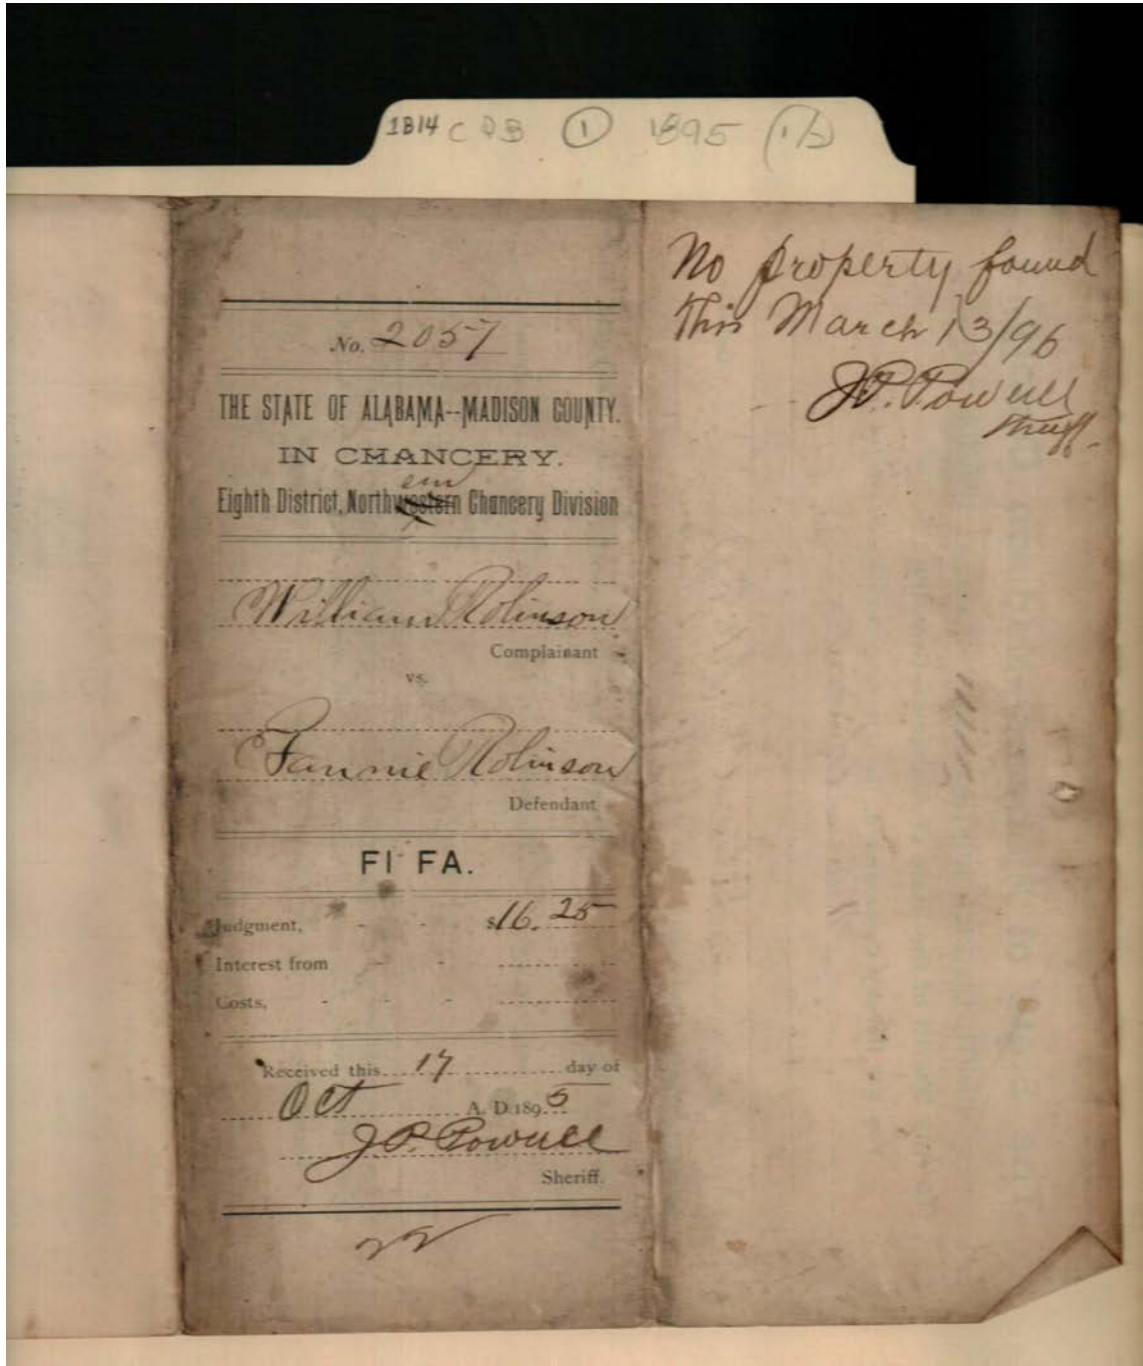 1B14 C Q B ① 1895 (1/2)
No. 2057
THE STATE OF ALABAMA--MADISON COUNTY.
IN CHANCERY.
ern
Eighth District, Northwestern Chancery Division
William Robinson
Complainant
vs.
Fannie Robinson
Defendant
FI FA.
Judgment, - - $16.25
Interest from - -
Costs, - - -
Received this 17 day of
Oct A. D. 1895
J.P. Powell
Sheriff.
22
No property found
this March 13/96
J.P. Powell
Sheriff.